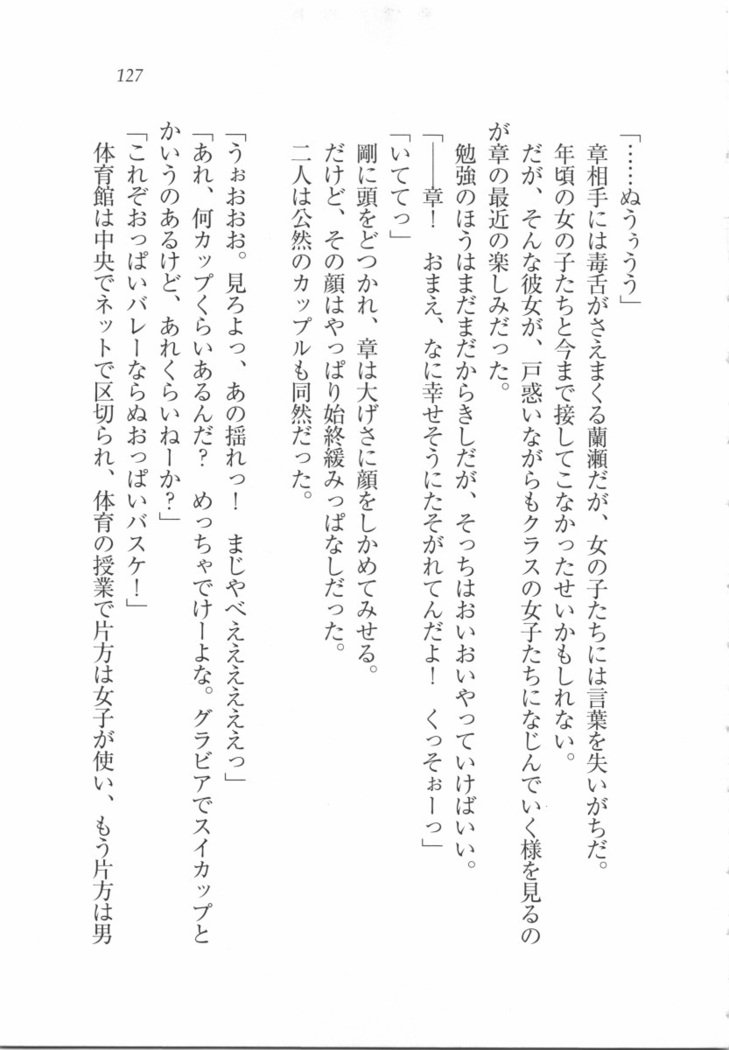 127
「……ぬうぅうう」
章相手には毒舌がさえまくる蘭瀬だが、女の子たちには言葉を失いがちだ。
年頃の女の子たちと今まで接してこなかったせいかもしれない。
だが、そんな彼女が、戸惑いながらもクラスの女子たちになじんでいく様を見るの
が章の最近の楽しみだった。
勉強のほうはまだまだからきしだが、そっちはおいおいやっていけばいい。
「――章！　おまえ、なに幸せそうにたそがれてんだよ！　くっそぉーっ」
「いててっ」
剛に頭をどつかれ、章は大げさに顔をしかめてみせる。
だけど、その顔はやっぱり始終緩みっぱなしだった。
二人は公然のカップルも同然だった。
「うぉおおお。見ろよっ、あの揺れっ！　まじやべえええええええっ」
「あれ、何カップくらいあるんだ？　めっちゃでけーよな。グラビアでスイカップと
かいうのあるけど、あれくらいねーか？」
「これぞおっぱいバレーならぬおっぱいバスケ！」
体育館は中央でネットで区切られ、体育の授業で片方は女子が使い、もう片方は男